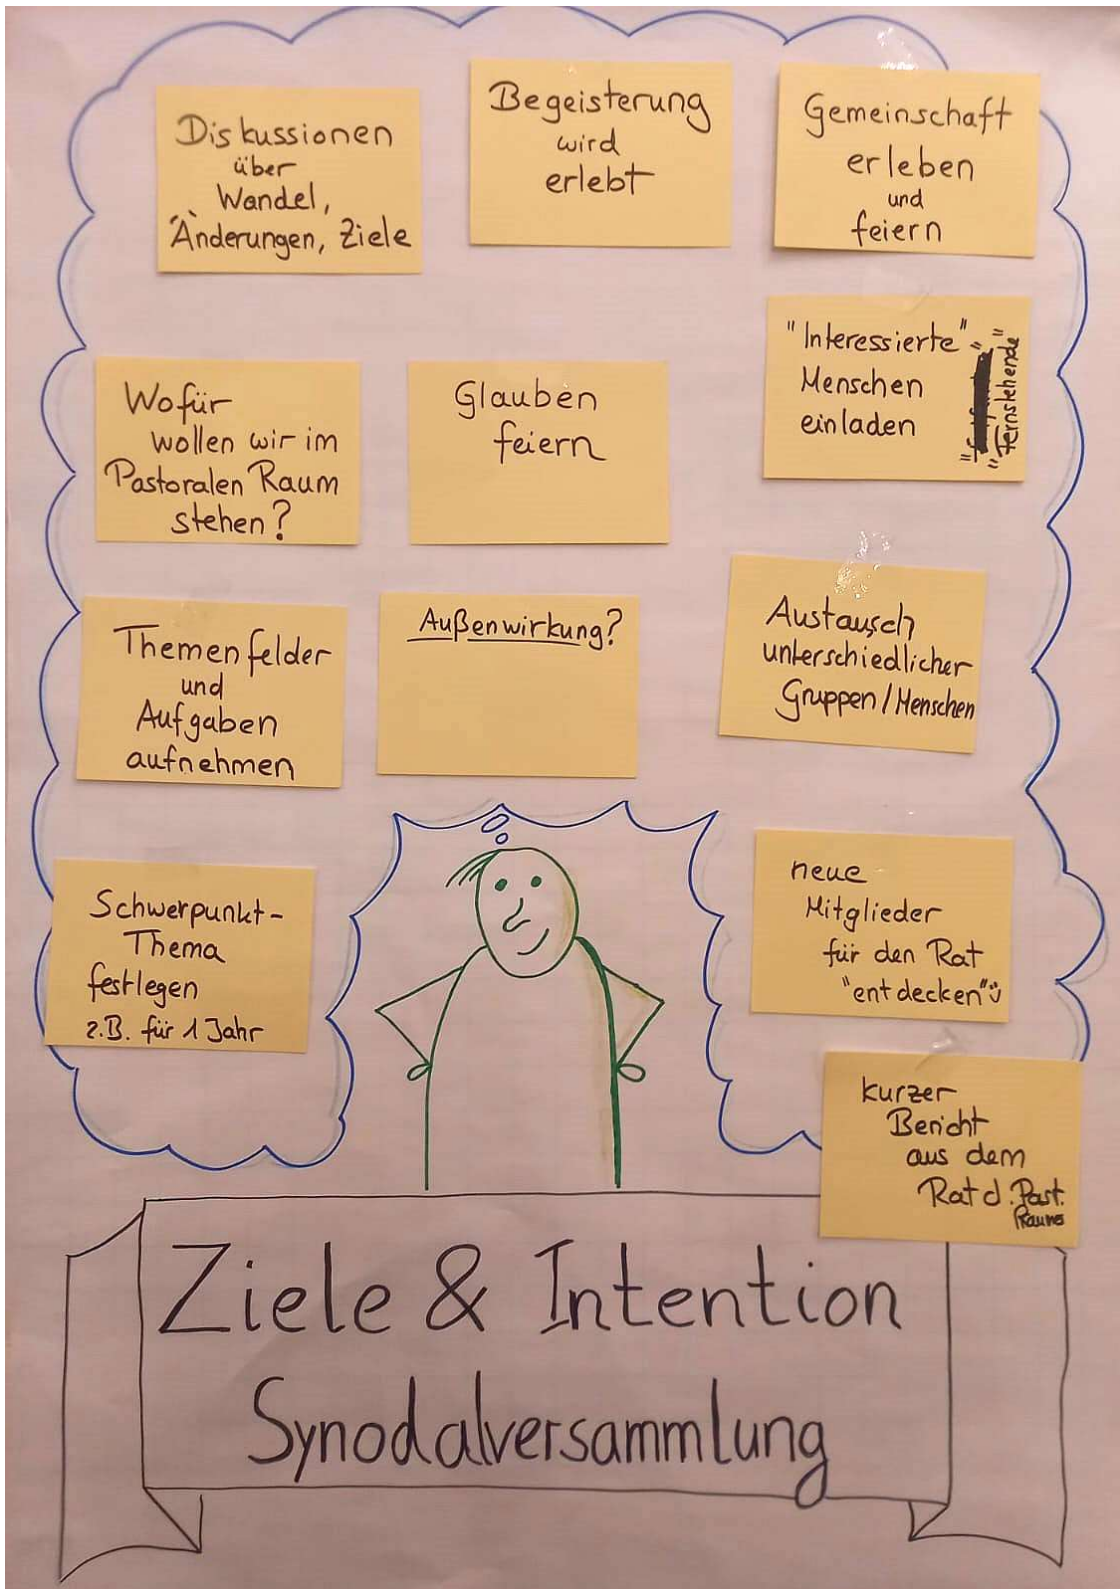 Diskussionen
über
Wandel,
Änderungen, Ziele
Begeisterung
wird
erlebt
Gemeinschaft
erleben
und
feiern
Wofür
wollen wir im
Pastoralen Raum
stehen?
Glauben
feiern
"Interessierte"
Menschen
einladen
"Fernstehende"
Themenfelder
und
Aufgaben
aufnehmen
Außenwirkung?
Austausch
unterschiedlicher
Gruppen/Menschen
Schwerpunkt-
Thema
festlegen
z.B. für 1 Jahr
neue
Mitglieder
für den Rat
"entdecken"
kurzer
Bericht
aus dem
Rat d. Past.
Raumes
Ziele & Intention
Synodalversammlung